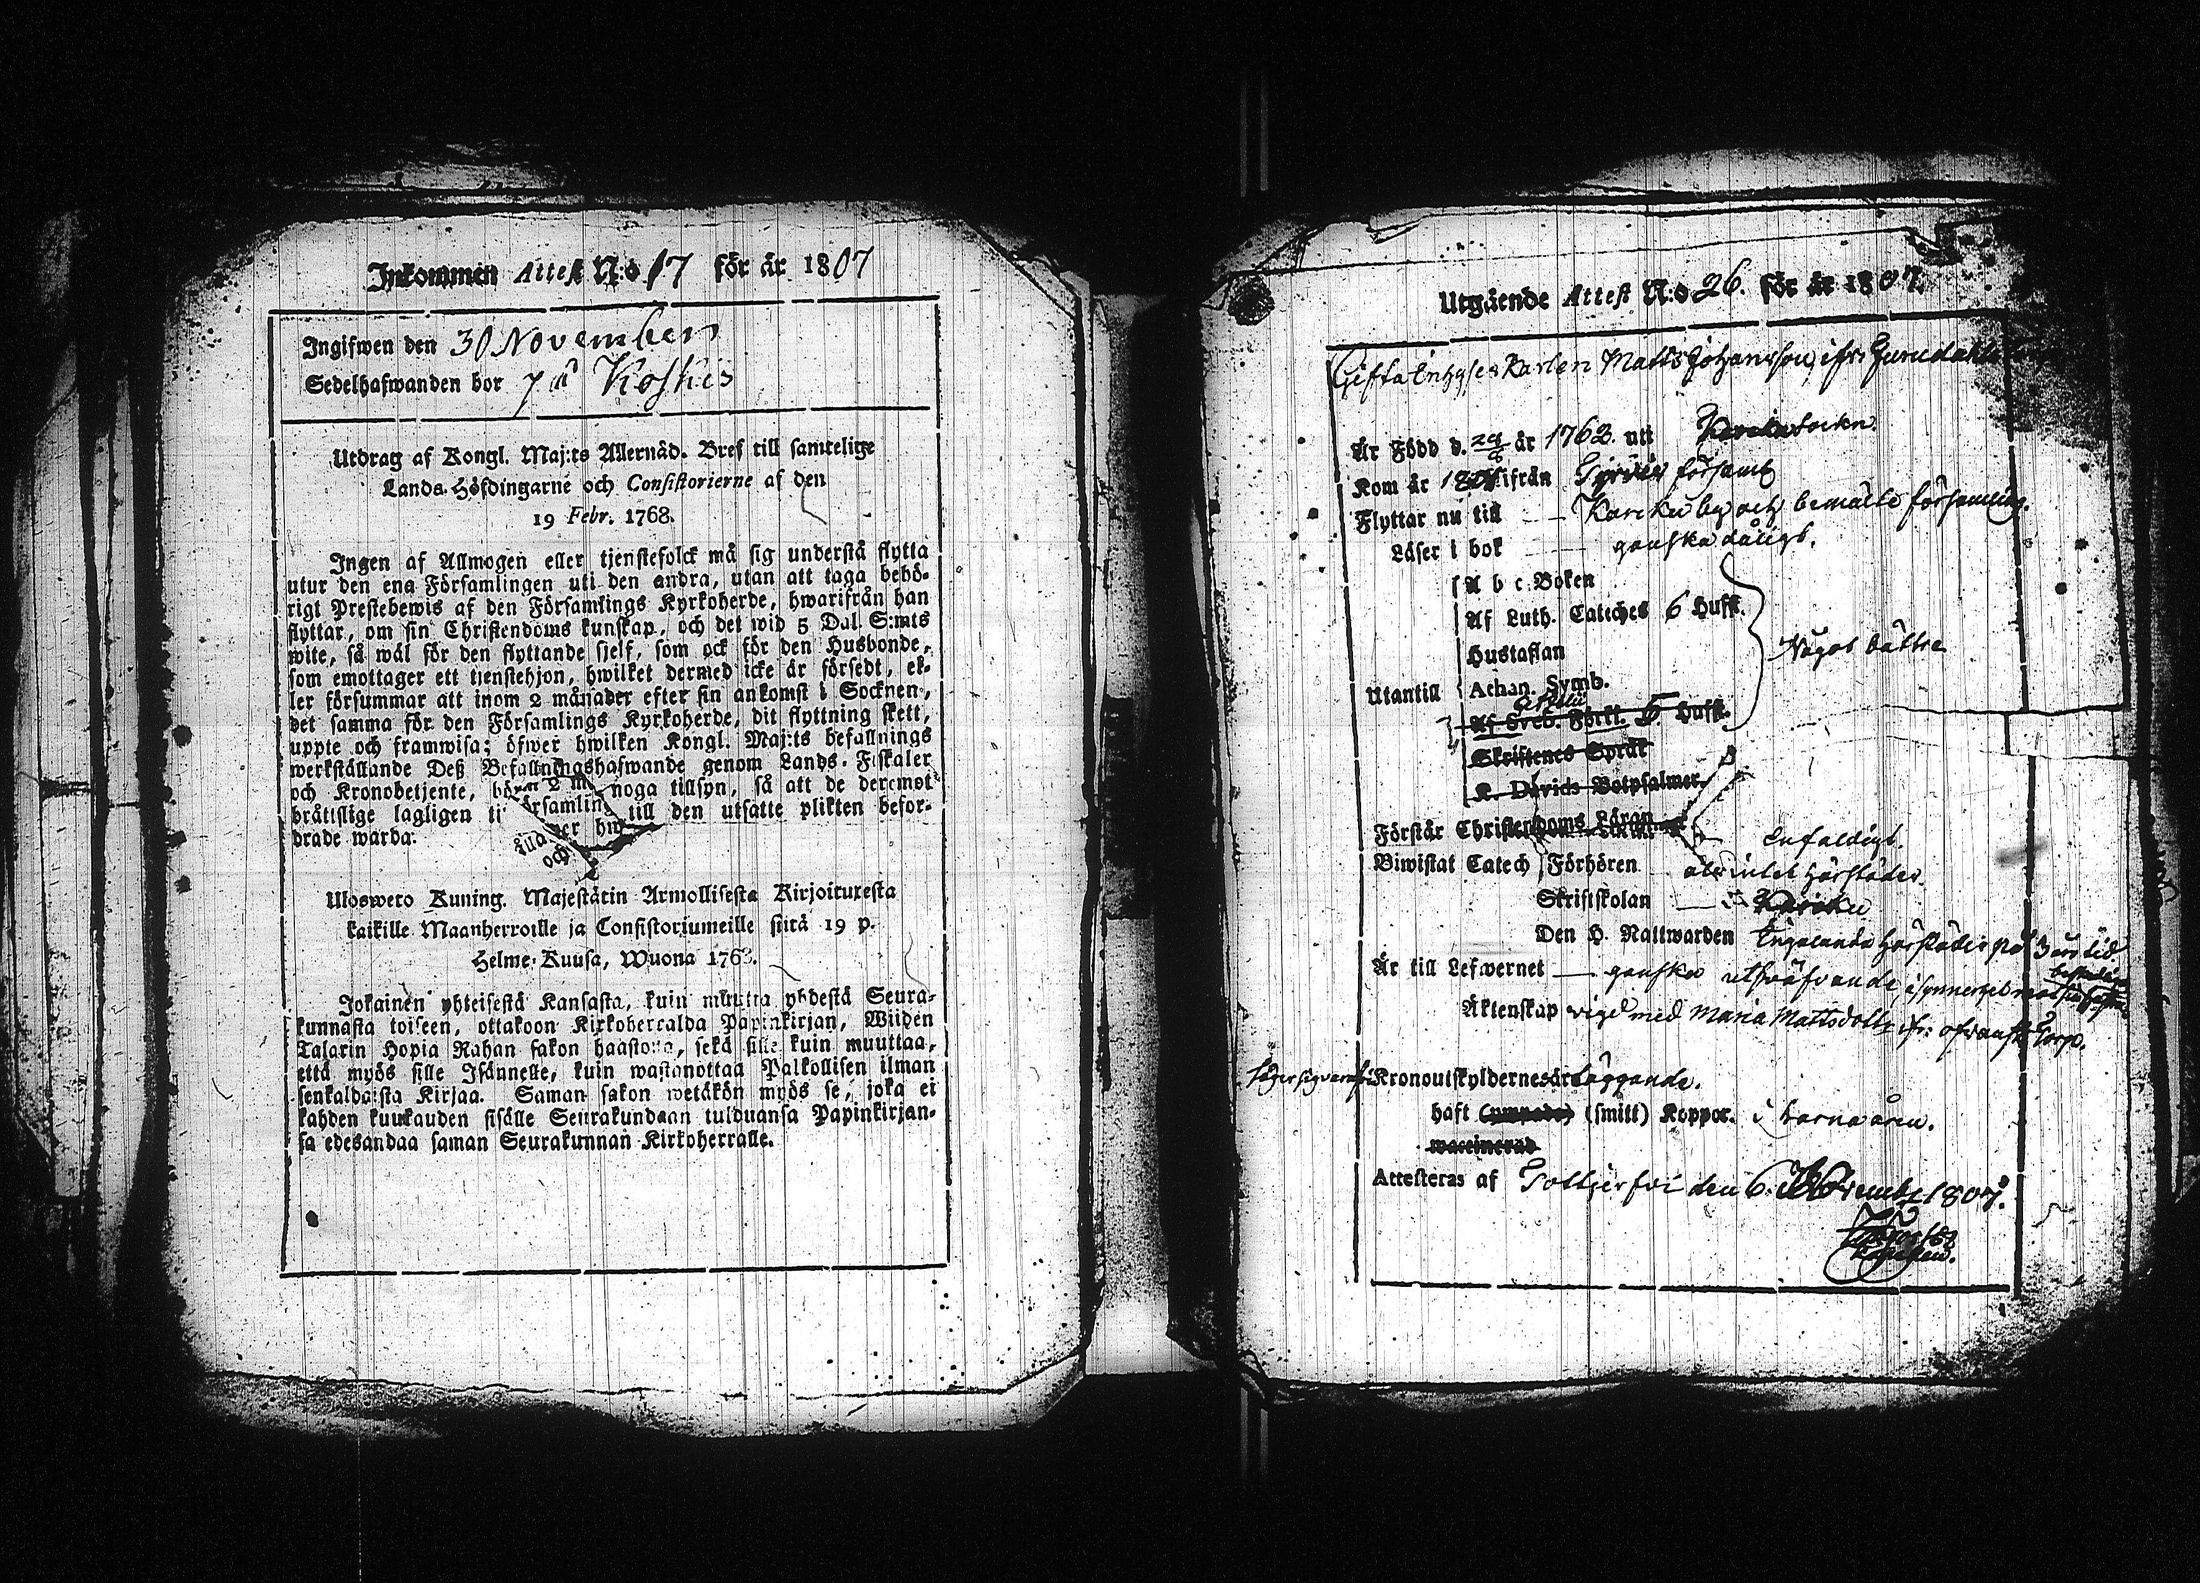 Inkommen Attest N:o 17 för år 1807
Ingifwen den 30 November
Sedelhafwanden bor på Koskis
Utdrag af Kongl. Maj:ts Allernåd. Bref till samtelige
Lands-Höfdingarne och Consistorierne af den
19 Febr. 1768.
Ingen af Allmogen eller tjenstefolck må sig understå flytta
utur den ena Församlingen uti den andra, utan att taga behö-
rigt Prestebewis af den Församlings Kyrkoherde, hwarifrån han
flyttar, om sin Christendoms kunskap, och det wid 5 Dal. S:mts
wite, så wäl för den flyttande sjelf, som ock för den Husbonde,
som emottager ett tjenstehjon, hwilket dermed icke är försedt, el-
ler försummar att inom 2 månader efter sin ankomst i Socknen,
det samma för den Församlings Kyrkoherde, dit flyttning skett,
uppte och framwisa; öfwer hwilken Kongl. Maj:ts befallnings
werkställande Deß Befallningshafwande genom Lands-Fiskaler
och Kronobetjente, noga tillsyn, så att de deremot
bråttslige lagligen till den utsatte plikten befor-
drade warda.
Ulosweto Kuning. Majestätin Armollisesta Kirjoituxesta
kaikille Maanherroille ja Consistoriumeille siitä 19 p.
Helme-Kuusa, Wuona 1768.
Jokainen yhteisestä Kansasta, kuin muutta yhdestä Seura-
kunnasta toiseen, ottakoon Kirkoherralda Papinkirjan, Wiiden
Talarin Hopia Rahan sakon haastolla, sekä sille kuin muuttaa,
että myös sille Isännelle, kuin wastanottaa Palkollisen ilman
senkaldaista Kirjaa. Saman sakon wetäkön myös se, joka ei
kahden kuukauden sisälle Seurakundaan tulduansa Papinkirjan-
sa edesandaa saman Seurakunnan Kirkoherralle.
Utgående Attest N:o 26. för år 1807.
Gifta Matts Johansson ifr.
Är Född d. år 1763 uti socken
Kom år ifrån församl
Flyttar nu till Karcku by och bemälte församling.
Läser i bok ganska dåligt.
A b c Boken
Af Luth. Cateches 6 Hufst.
Hustaflan
Något bättre
Utantill
Athan. Symb.
Af Sveb. Förkl. 5 Hufst.
Skriftenes Språk
K. Davids Botpsalmer
Förstår Christendoms Läran enfaldigt.
Biwistat Catech Förhören intet härstädes.
Skriftskolan
Den H. Nattwarden härstädes på 3 års tid
Är till Lefwernet ganska
Äktenskap vigd med Maria Mattsdotter ifr. Torp.
Kronoutskyldernes
haft (ympade) (smitt) Koppor. i barna åren.
waccinerad
Attesteras af den 6. November 1807.